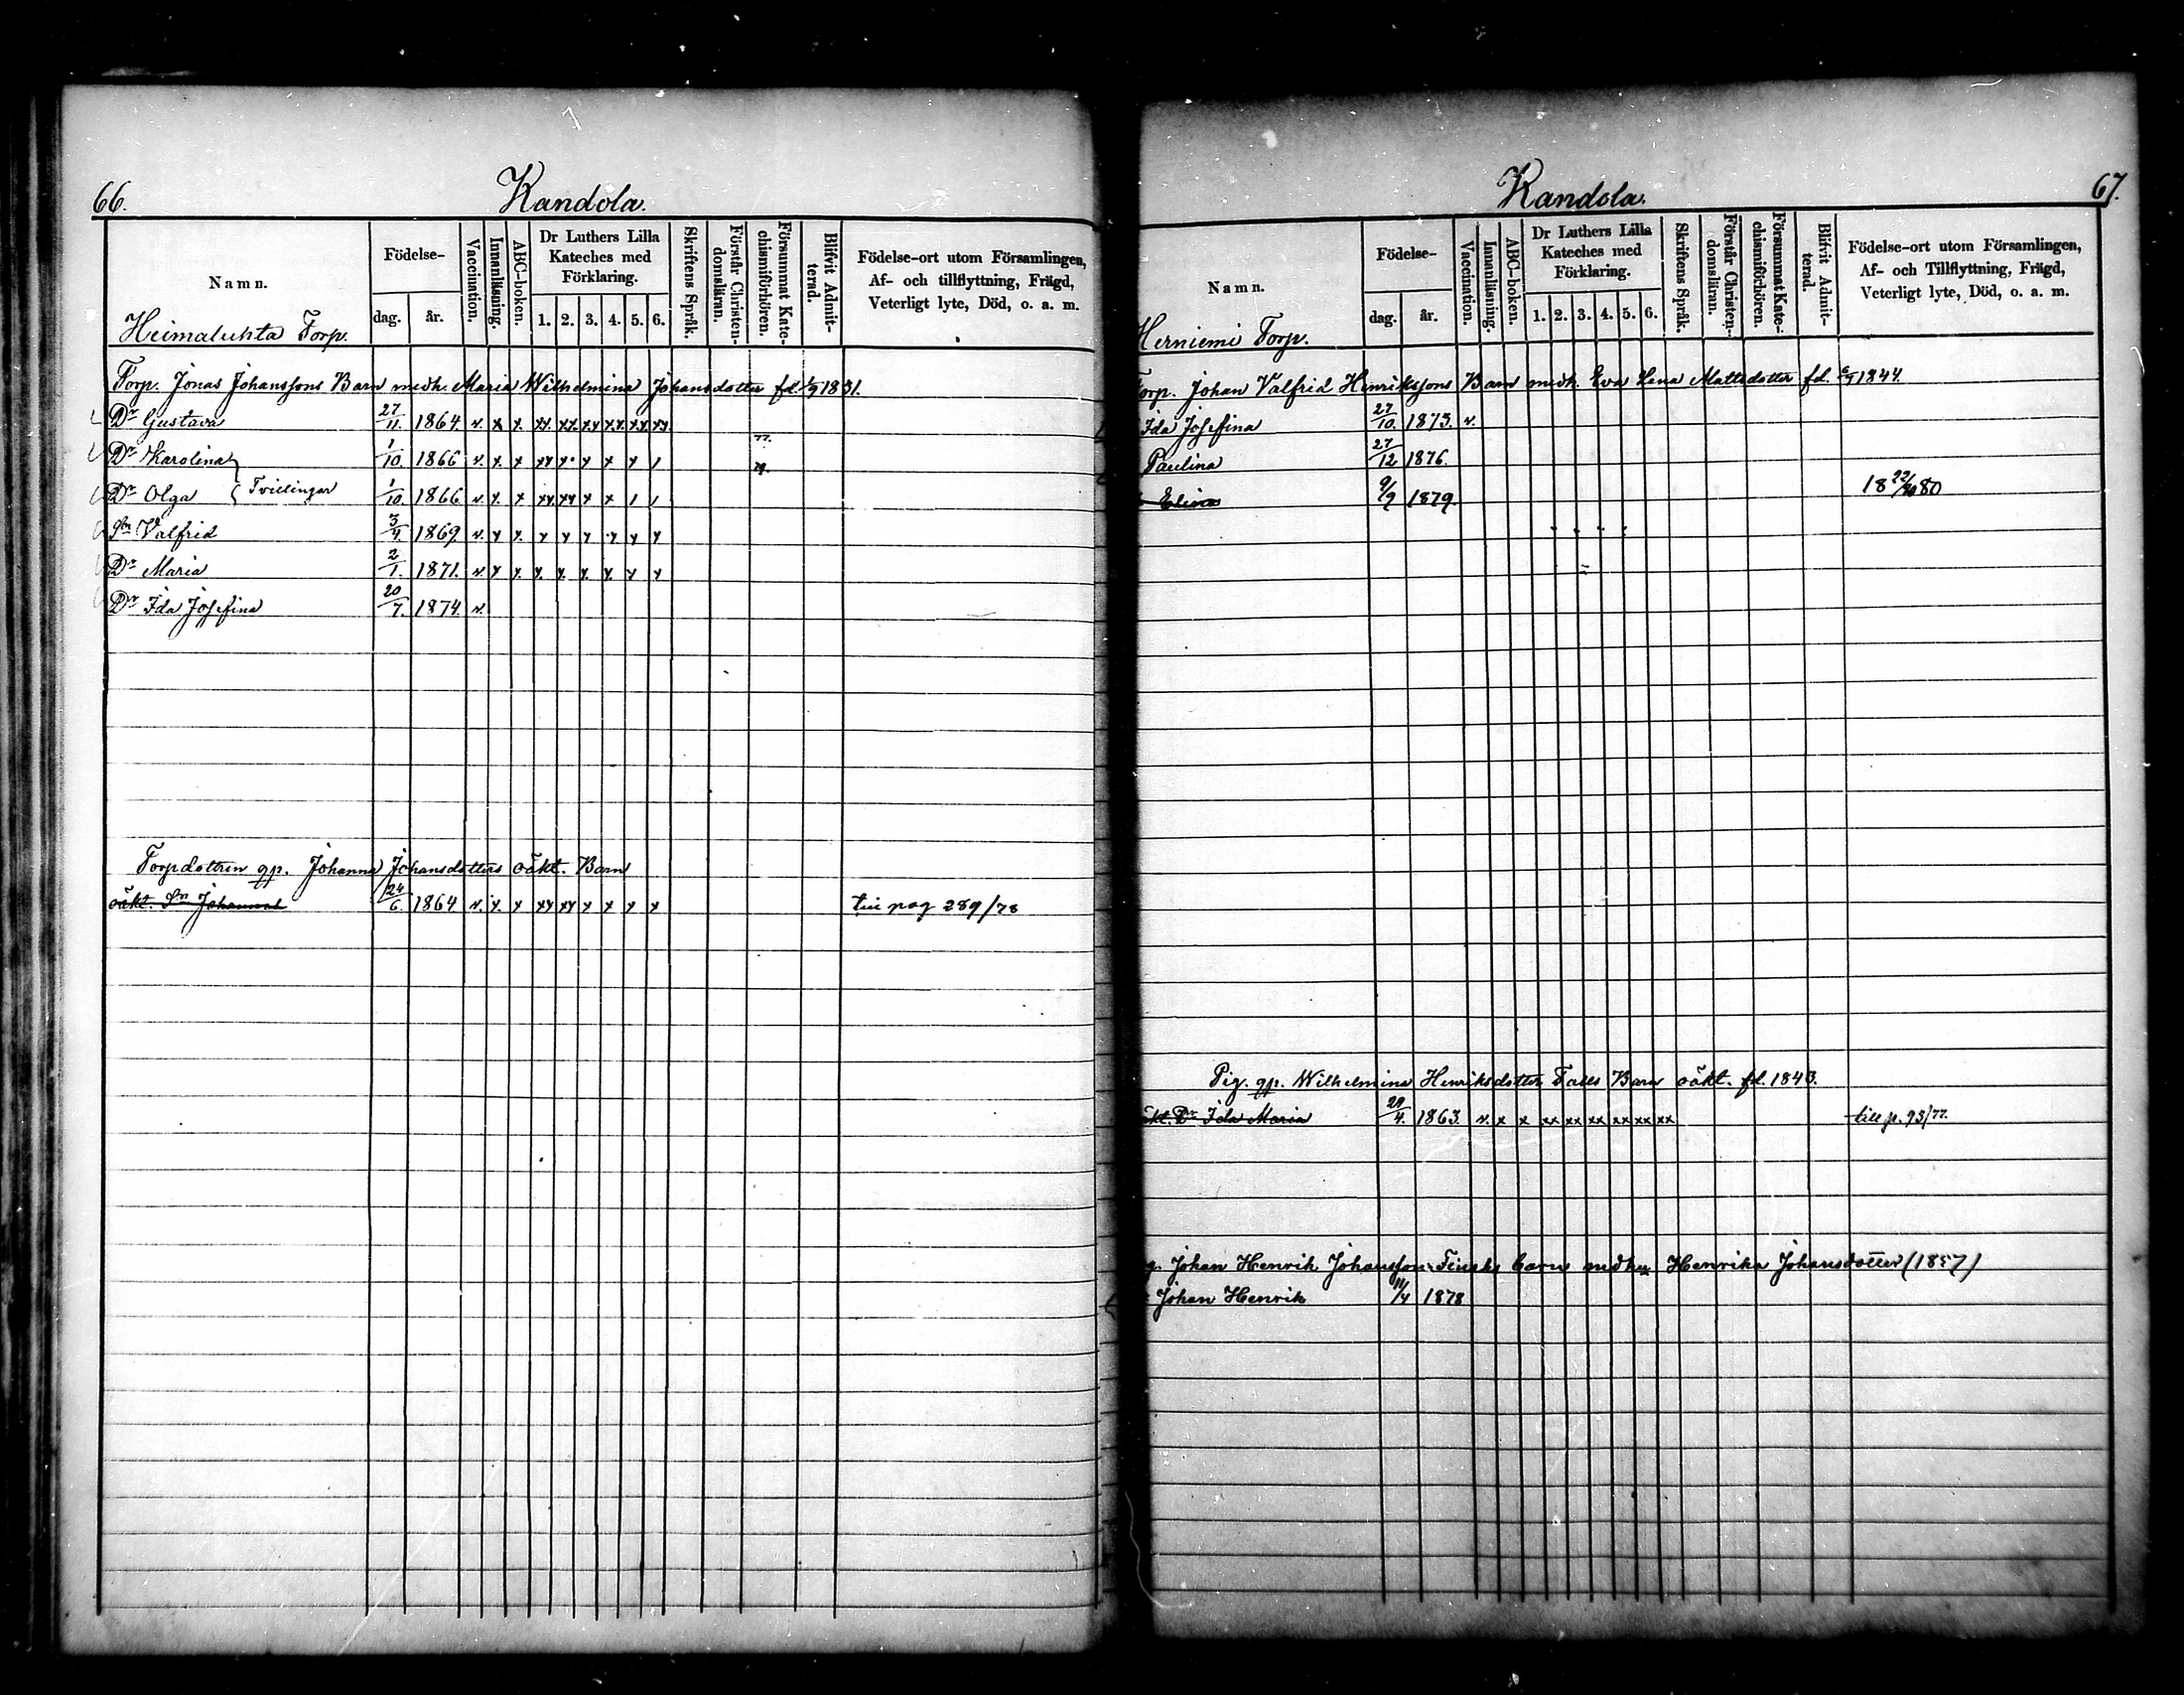 66.
Kandola.
Namn.
Födelse-
dag.
år.
Vaccination.
Innanläsning.
ABC-boken.
Dr Luthers Lilla
Kateches med
Förklaring.
1. 2. 3. 4. 5. 6.
Skriftens Språk.
Förstår Christen-
domsläran.
Försummat Kate-
chismiförhören.
Blifvit Admit-
terad.
Födelse-ort utom Församlingen,
Af- och tillflyttning, Frägd,
Veterligt lyte, Död, o. a. m.
Heimaluhta Torp.
Torp. Jonas Johanssons Barn medh. Maria Wilhelmina Johansdotter fd. 1831.
Dr Gustava 27/11. 1864 v. x x. xx. xx. xx xx xx xx
77.
Dr Karolina 1/10. 1866 v. x. x xx x x x x /
Dr Olga } Tvillingar 1/10. 1866 v x. x xx. xx x x / /
Sn Valfrid 3/4. 1869. v. x x. x x x x x x
Dr Maria 2/1. 1871. v. x x. x. x. x. x. x x
Dr Ida Josefina 20/7. 1874. v.
Torpdottren gp. Johanna Johansdotters oäkt. Barn
oäkt. Sn Johannes 24/6. 1864 v. x. x xx xx x x x x till pag 289/78
Kandola.
67.
Namn.
Födelse-
dag.
år.
Vaccination.
Innanläsning.
ABC-boken.
Dr Luthers Lilla
Kateches med
Förklaring.
1. 2. 3. 4. 5. 6.
Skriftens Språk.
Förstår Christen-
domsläran.
Försummat Kate-
chismiförhören.
Blifvit Admit-
terad.
Födelse-ort utom Församlingen,
Af- och Tillflyttning, Frägd,
Veterligt lyte, Död, o. a. m.
Herniemi Torp.
Torp. Johan Valfrid Henrikssons Barn medh. Eva Lena Mattsdotter fd. 1844.
Ida Josefina 27/10. 1873. v.
Paulina 27/12 1876.
Elina 9/9 1879. 18 80
Pig. gp. Wilhelmina Henriksdotter Falls Barn oäkt. fd. 1843.
oäkt. Dr Ida Maria 29/4. 1863. v. x x xx xx xx xx xx xx till p. 93/77.
Johan Henrik Johansson Barn medh Henrika Johansdotter (1857)
Johan Henrik 11/4 1878